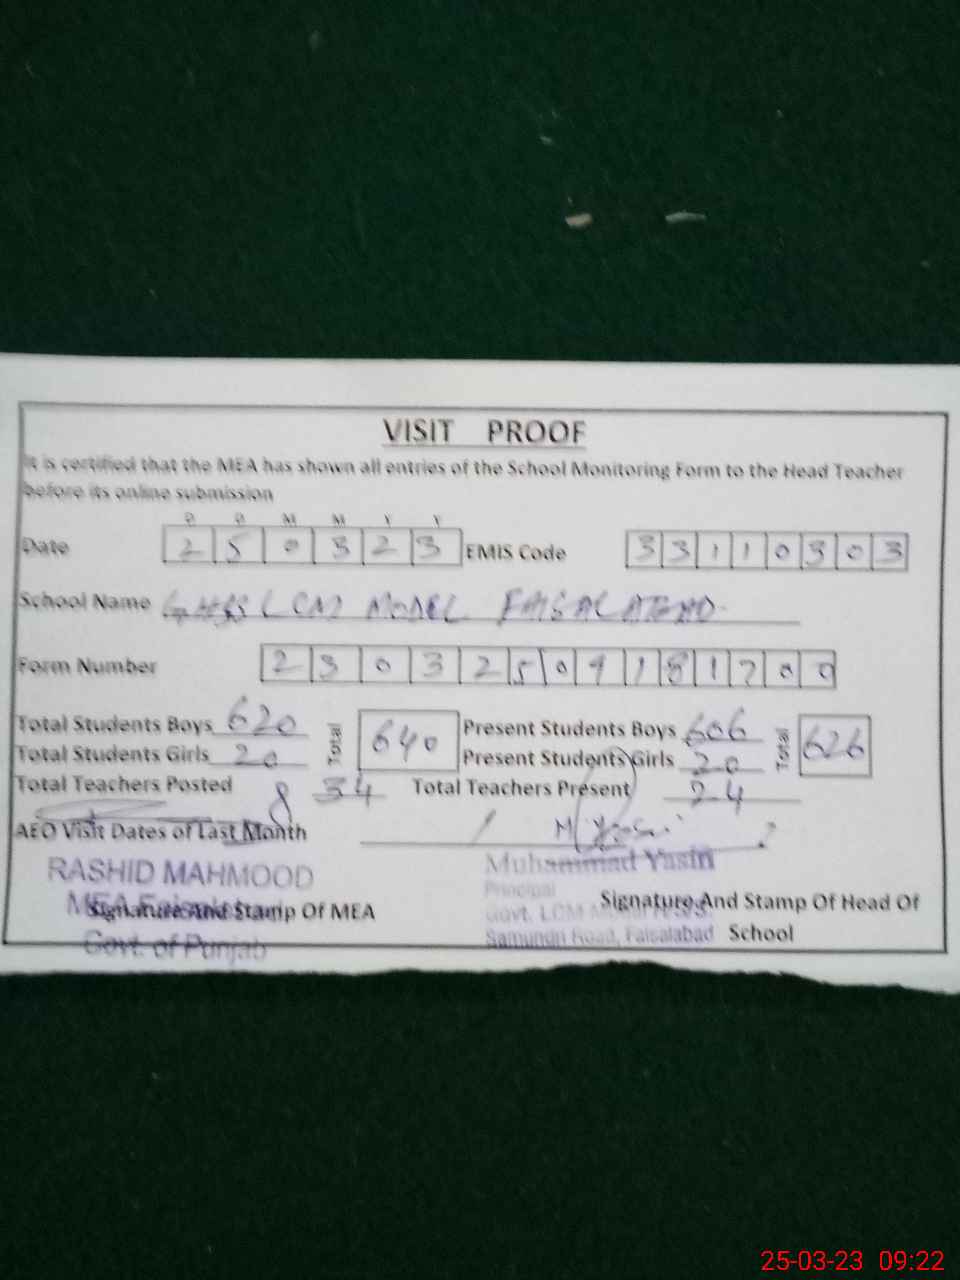 VISIT PROOF
It is certified that the MEA has shown all entries of the School Monitoring Form to the Head Teacher
before its online submission
D D M M Y Y
Date 2 5 0 3 2 3 EMIS Code 3 3 1 1 0 3 0 3
School Name GHSS LCM MODEL FAISALABAD.
Form Number 2 3 0 3 2 5 0 9 1 8 1 7 0 0
Total Students Boys 620 Total 640 Present Students Boys 606 Total 626
Total Students Girls 20 Present Students Girls 20
Total Teachers Posted 34 Total Teachers Present 24
AEO Visit Dates of Last Month
RASHID MAHMOOD Muhammad Yasin
Principal
MEA Signature And Stamp Of MEA Govt. LCM Signature And Stamp Of Head Of
Govt. of Punjab Samundri Road, Faisalabad School
25-03-23 09:22